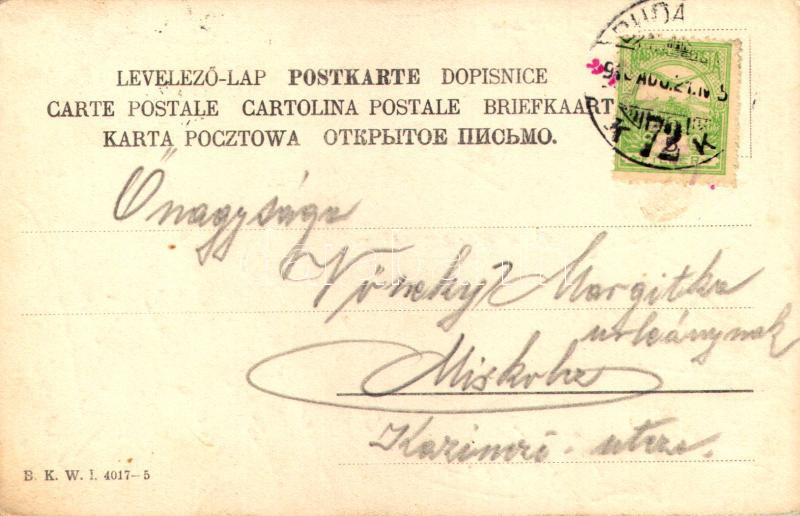 LEVELEZŐ-LAP POSTKARTE DOPISNICE
CARTE POSTALE CARTOLINA POSTALE BRIEFKAART
KARTA POCZTOWA ОТКРЫТОЕ ПИСЬМО.
72
Őnagysága
Margitka
urleánynak
Miskolcz
Kazinczi-utcza.
B. K. W. I. 4017-5